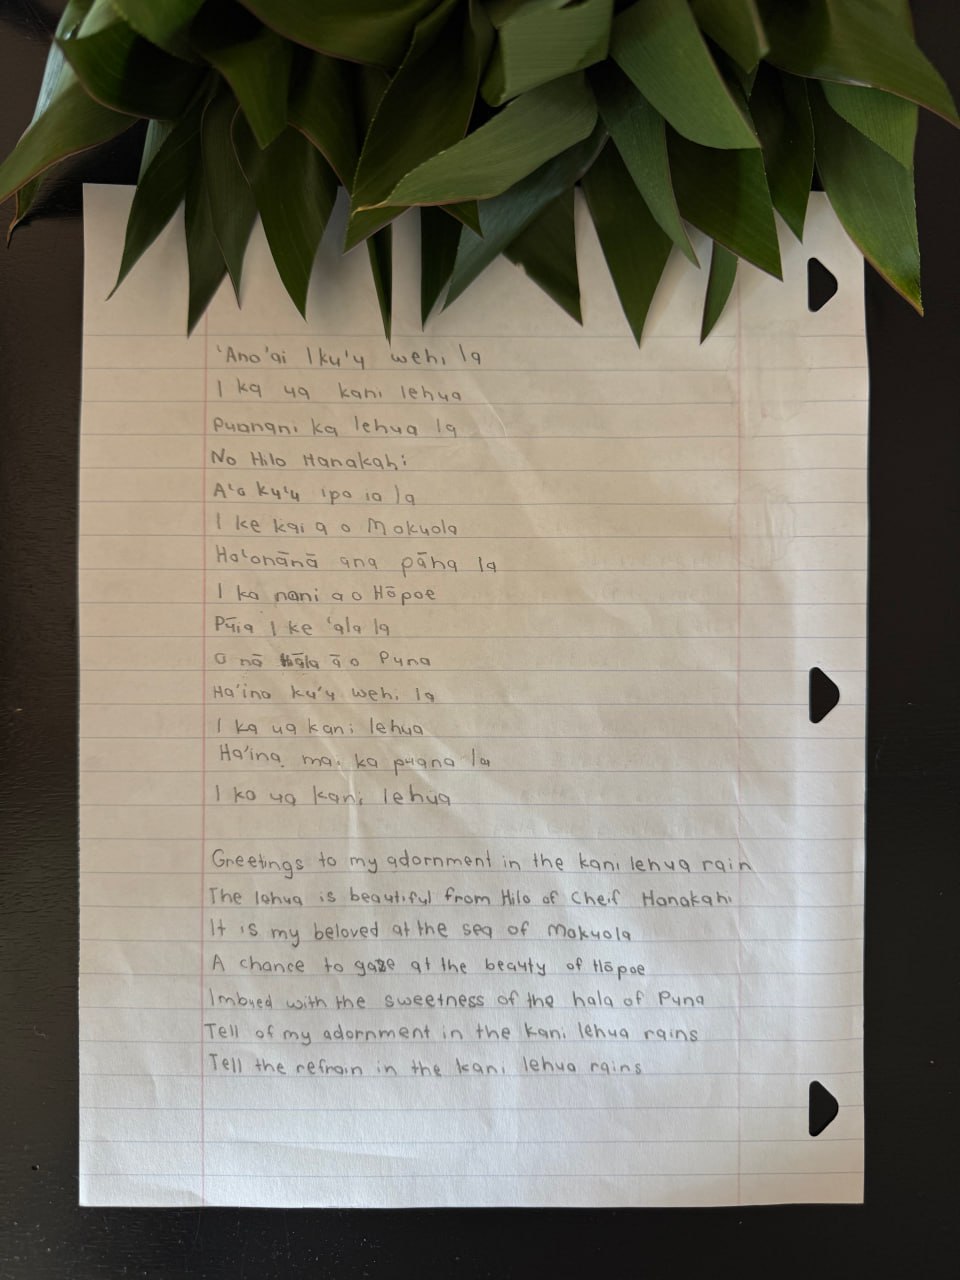 'Ano'ai I ku'u wehi la
I ka ua kani lehua
Puanani ka lehua la
No Hilo Hanakahi
A'o ku'u ipo ia la
I ke kai a o Mokuola
Ho'onānā ana pāha la
I ka nani a o Hōpoe
Pūia I ke 'ala la
O nā Hāla ā o Puna
Ha'ina ku'u wehi la
I ka ua kani lehua
Ha'ina mai ka puana la
I ka ua kani lehua
Greetings to my adornment in the kani lehua rain
The lehua is beautiful from Hilo of Cheif Hanakahi
It is my beloved at the sea of Mokuola
A chance to gaze at the beauty of Hōpoe
Imbued with the sweetness of the hala of Puna
Tell of my adornment in the kani lehua rains
Tell the refrain in the kani lehua rains